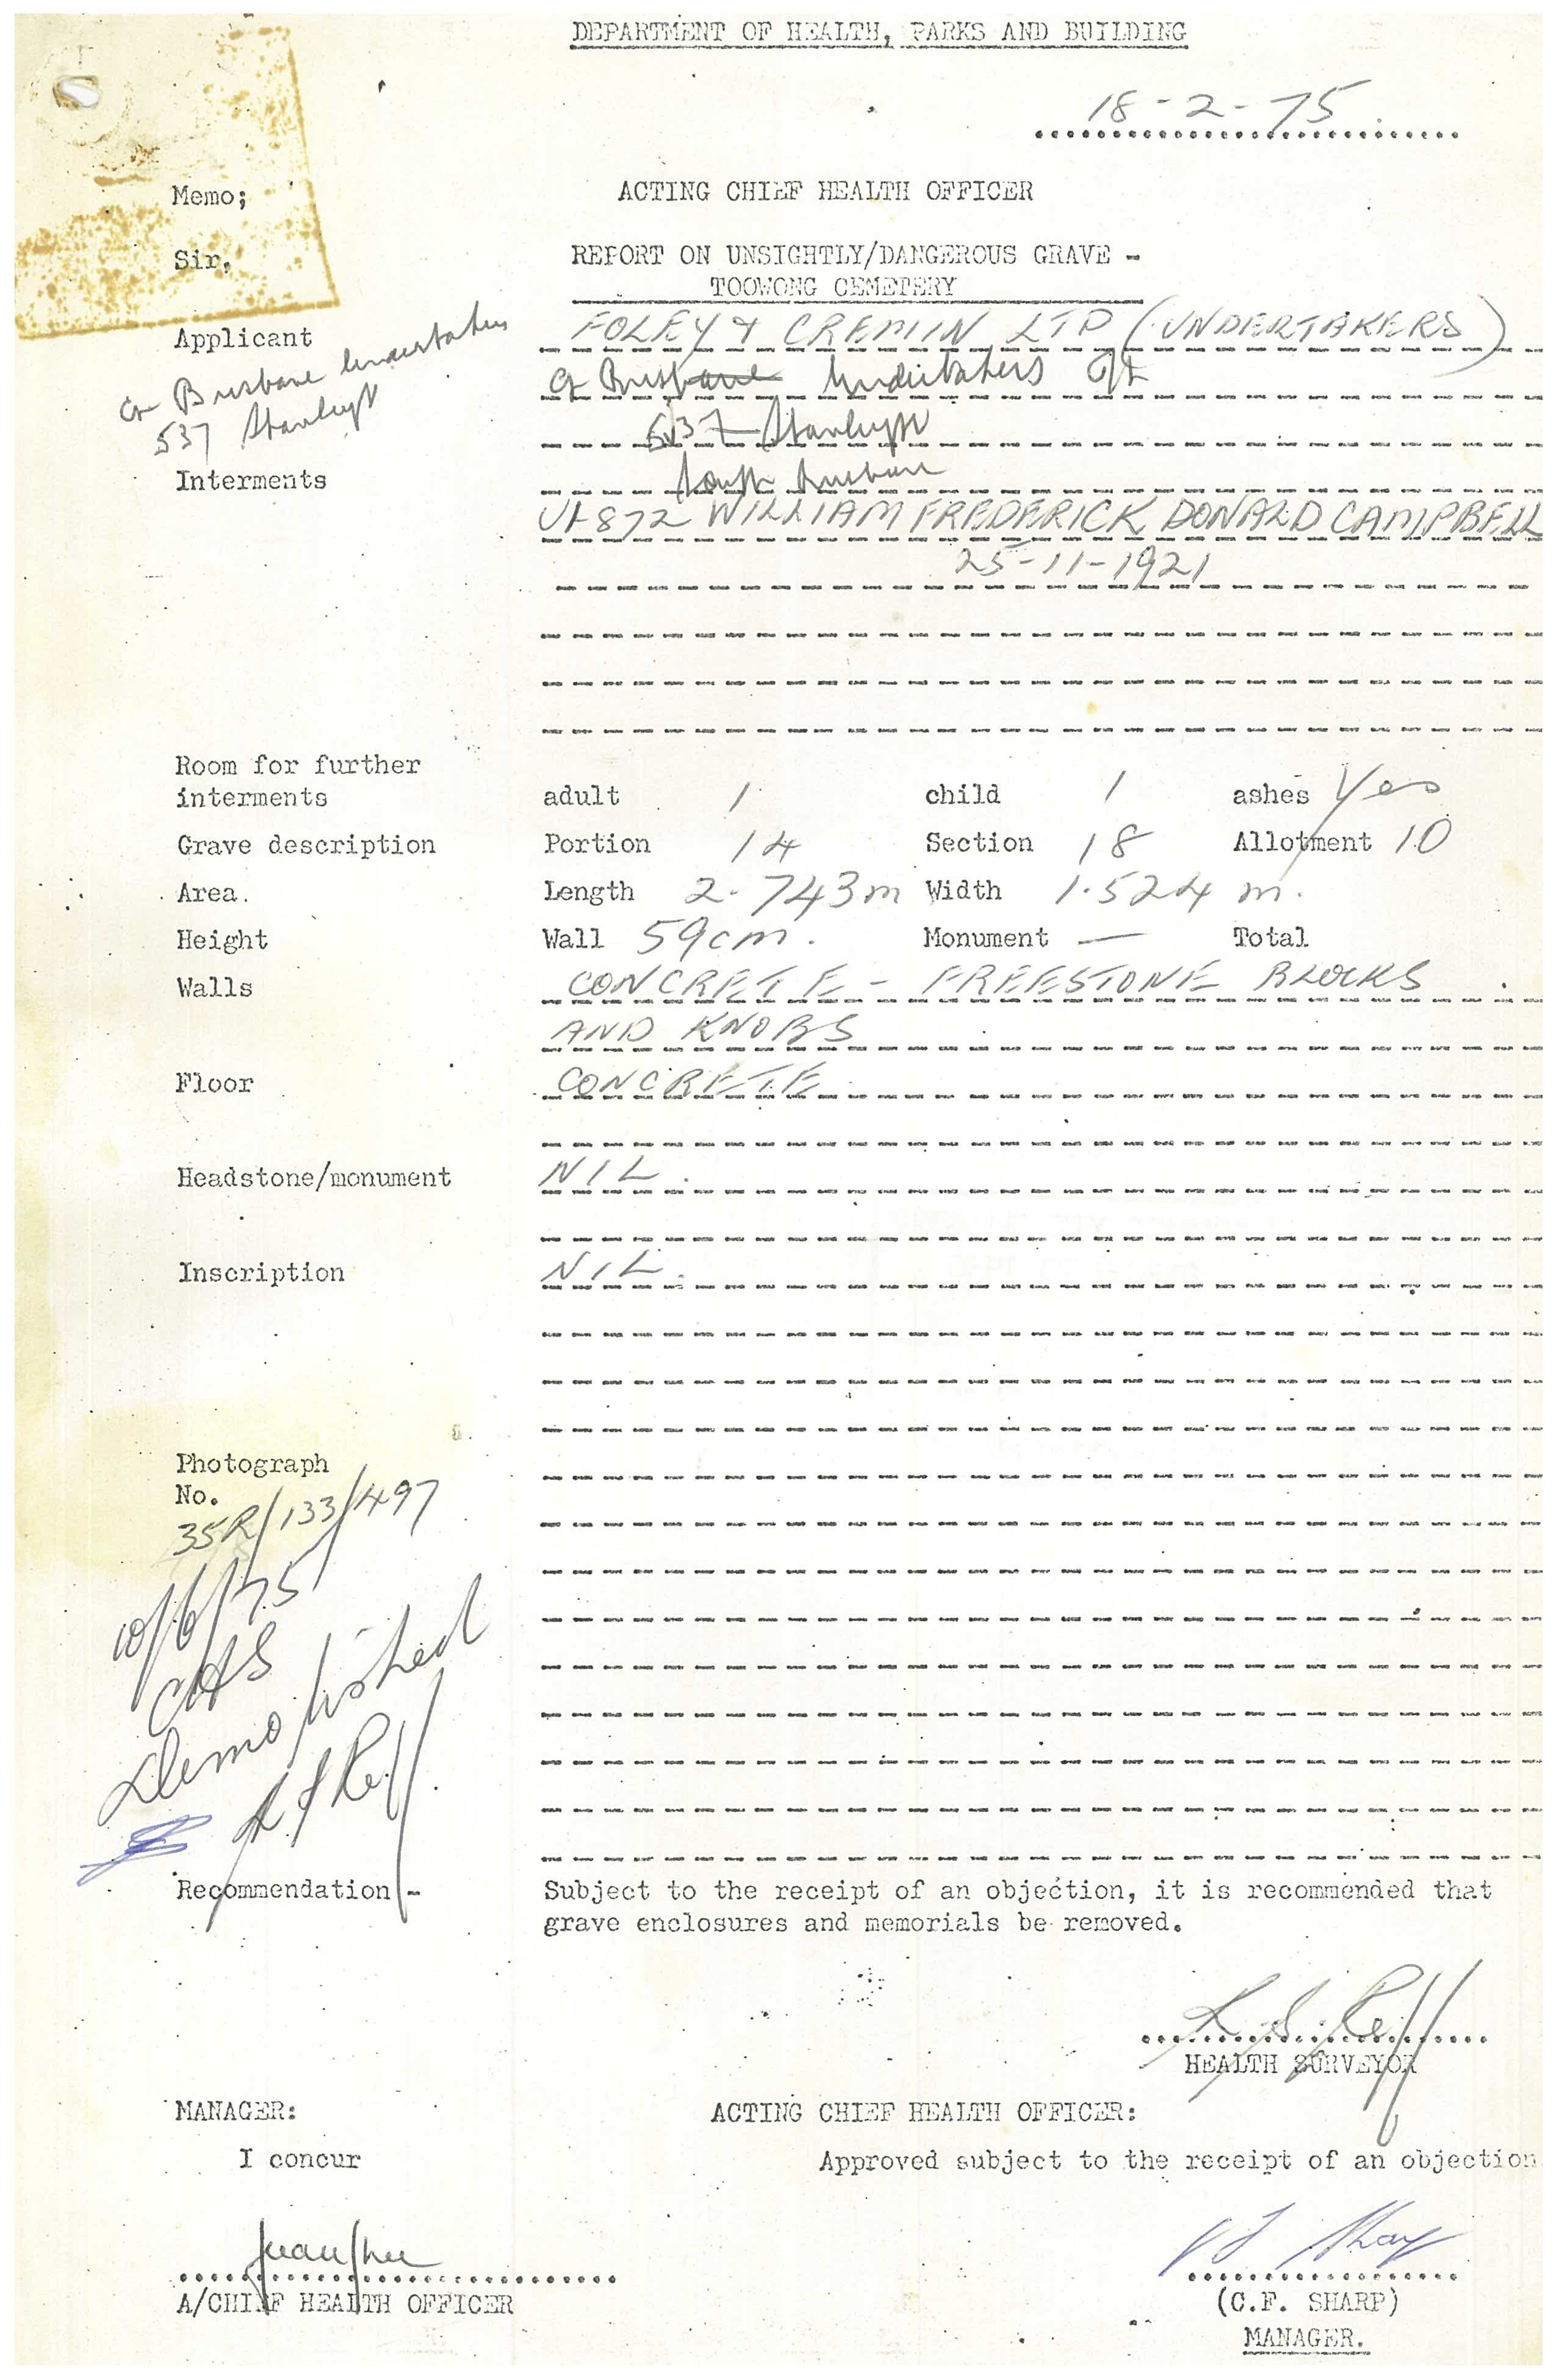 DEPARTMENT OF HEALTH, PARKS AND BUILDING
18-2-75
ACTING CHIEF HEALTH OFFICER
Memo;
Sir,
REPORT ON UNSIGHTLY/DANGEROUS GRAVE -
TOOWONG CEMETERY
Applicant FOLEY & CREMIN LTD (UNDERTAKERS)
Brisbane Undertakers
537 Stanley St
Brisbane Undertakers
537 Stanley St
South Brisbane
Interments
872 WILLIAM FREDERICK DONALD CAMPBELL
25-11-1921
Room for further
interments adult 1 child 1 ashes Yes
Grave description Portion 14 Section 18 Allotment 10
Area. Length 2.743m Width 1.524 m.
Height Wall 59cm. Monument — Total
Walls CONCRETE - FREESTONE BLOCKS
AND KNOBS
Floor CONCRETE
Headstone/monument NIL.
Inscription NIL.
Photograph
No.
35R/133/497
10/6/75
CHS
Demolished
Recommendation - Subject to the receipt of an objection, it is recommended that
grave enclosures and memorials be removed.
HEALTH SURVEYOR
MANAGER: ACTING CHIEF HEALTH OFFICER:
I concur Approved subject to the receipt of an objection
A/CHIEF HEALTH OFFICER
(C.F. SHARP)
MANAGER.